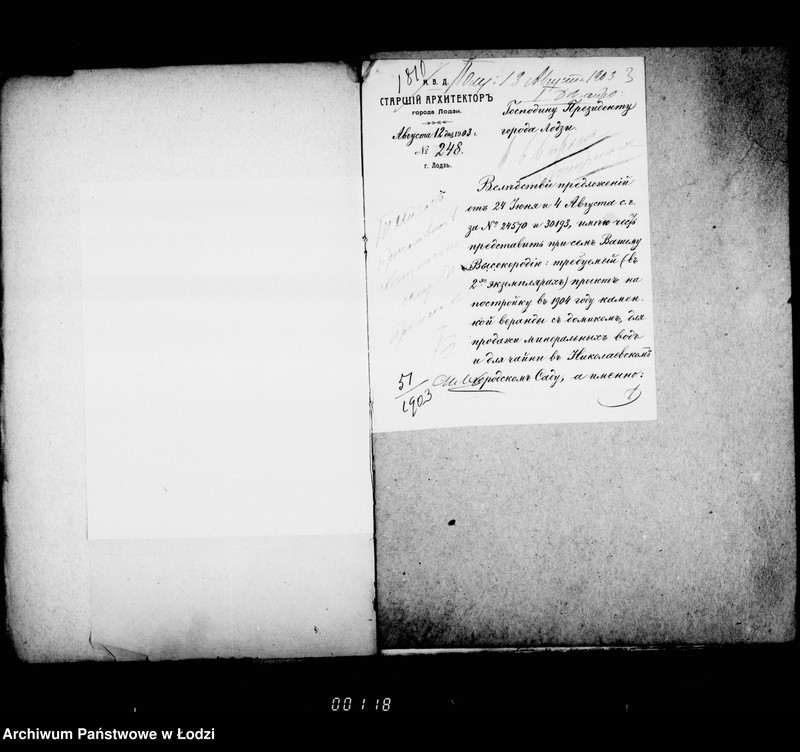 1810
Пол: 13 Августа 1903
3
М. В. Д.
СТАРШІЙ АРХИТЕКТОРЪ
города Лодзи.
Августа 12 дня 1903 г.
№ 248.
г. Лодзь.
Господину Президенту
города Лодзи.
Вслѣдствіе предложеній
отъ 24 Іюня и 4 Августа с. г.
за № 24570 и 30193, имѣю честь
представить при семъ Вашему
Высокородію: требуемый (въ
2хъ экземплярахъ) проектъ на
постройку въ 1904 году камен-
ной веранды съ домикомъ, для
продажи минеральныхъ водъ
и для чайни въ Николаевскомъ
Городскомъ Саду, а именно:
51/1903
00118
Archiwum Państwowe w Łodzi